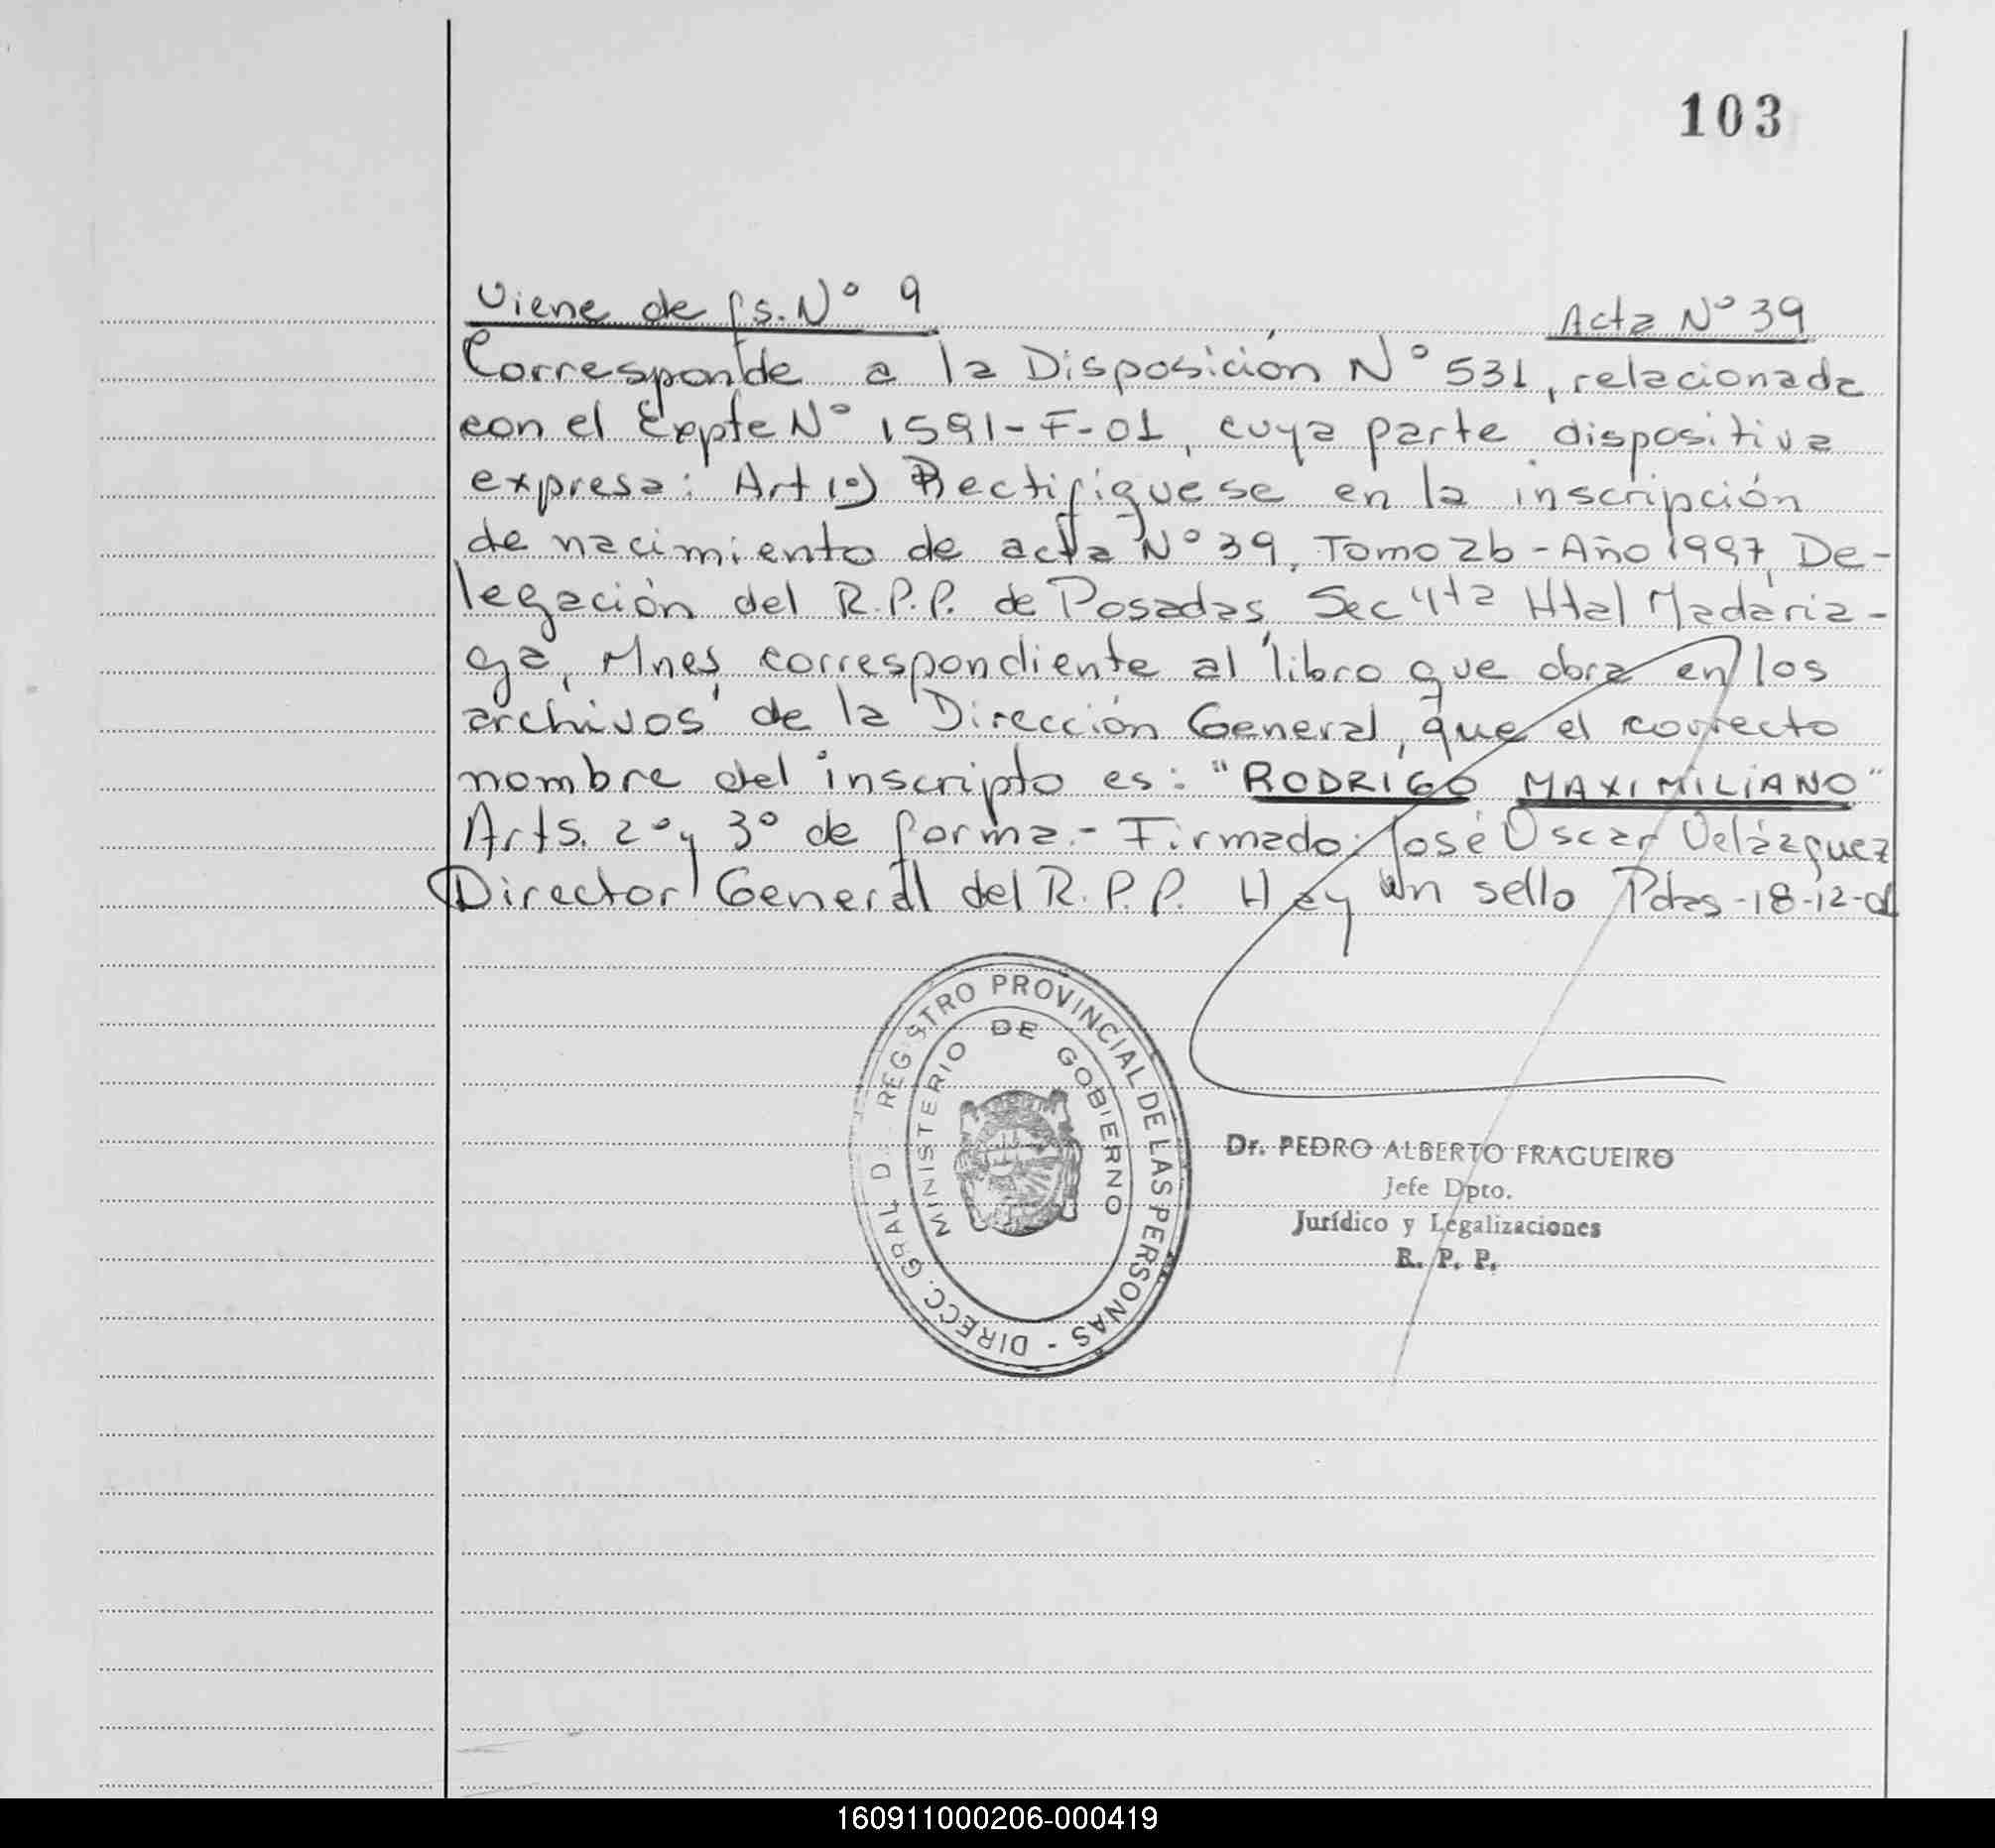 103
Viene de fs. N° 9
Acta N° 39
Corresponde a la Disposición N° 531, relacionada
con el Expte N° 1591-F-01, cuya parte dispositiva
expresa: Art 1°) Rectifíquese en la inscripción
de nacimiento de acta N° 39, Tomo 2b - Año 1997, De-
legación del R.P.P. de Posadas, Sec 4ta Htal Madaria-
ga, Mnes, correspondiente al libro que obra en los
archivos de la Dirección General, que el correcto
nombre del inscripto es: "RODRIGO MAXIMILIANO"
Arts. 2° y 3° de forma.- Firmado: José Oscar Velázquez
Director General del R.P.P. Hay un sello Pdas-18-12-01
DIRECC. GRAL D. REGISTRO PROVINCIAL DE LAS PERSONAS -
MINISTERIO DE GOBIERNO
Dr. PEDRO ALBERTO FRAGUEIRO
Jefe Dpto.
Jurídico y Legalizaciones
R. P. P.
160911000206-000419